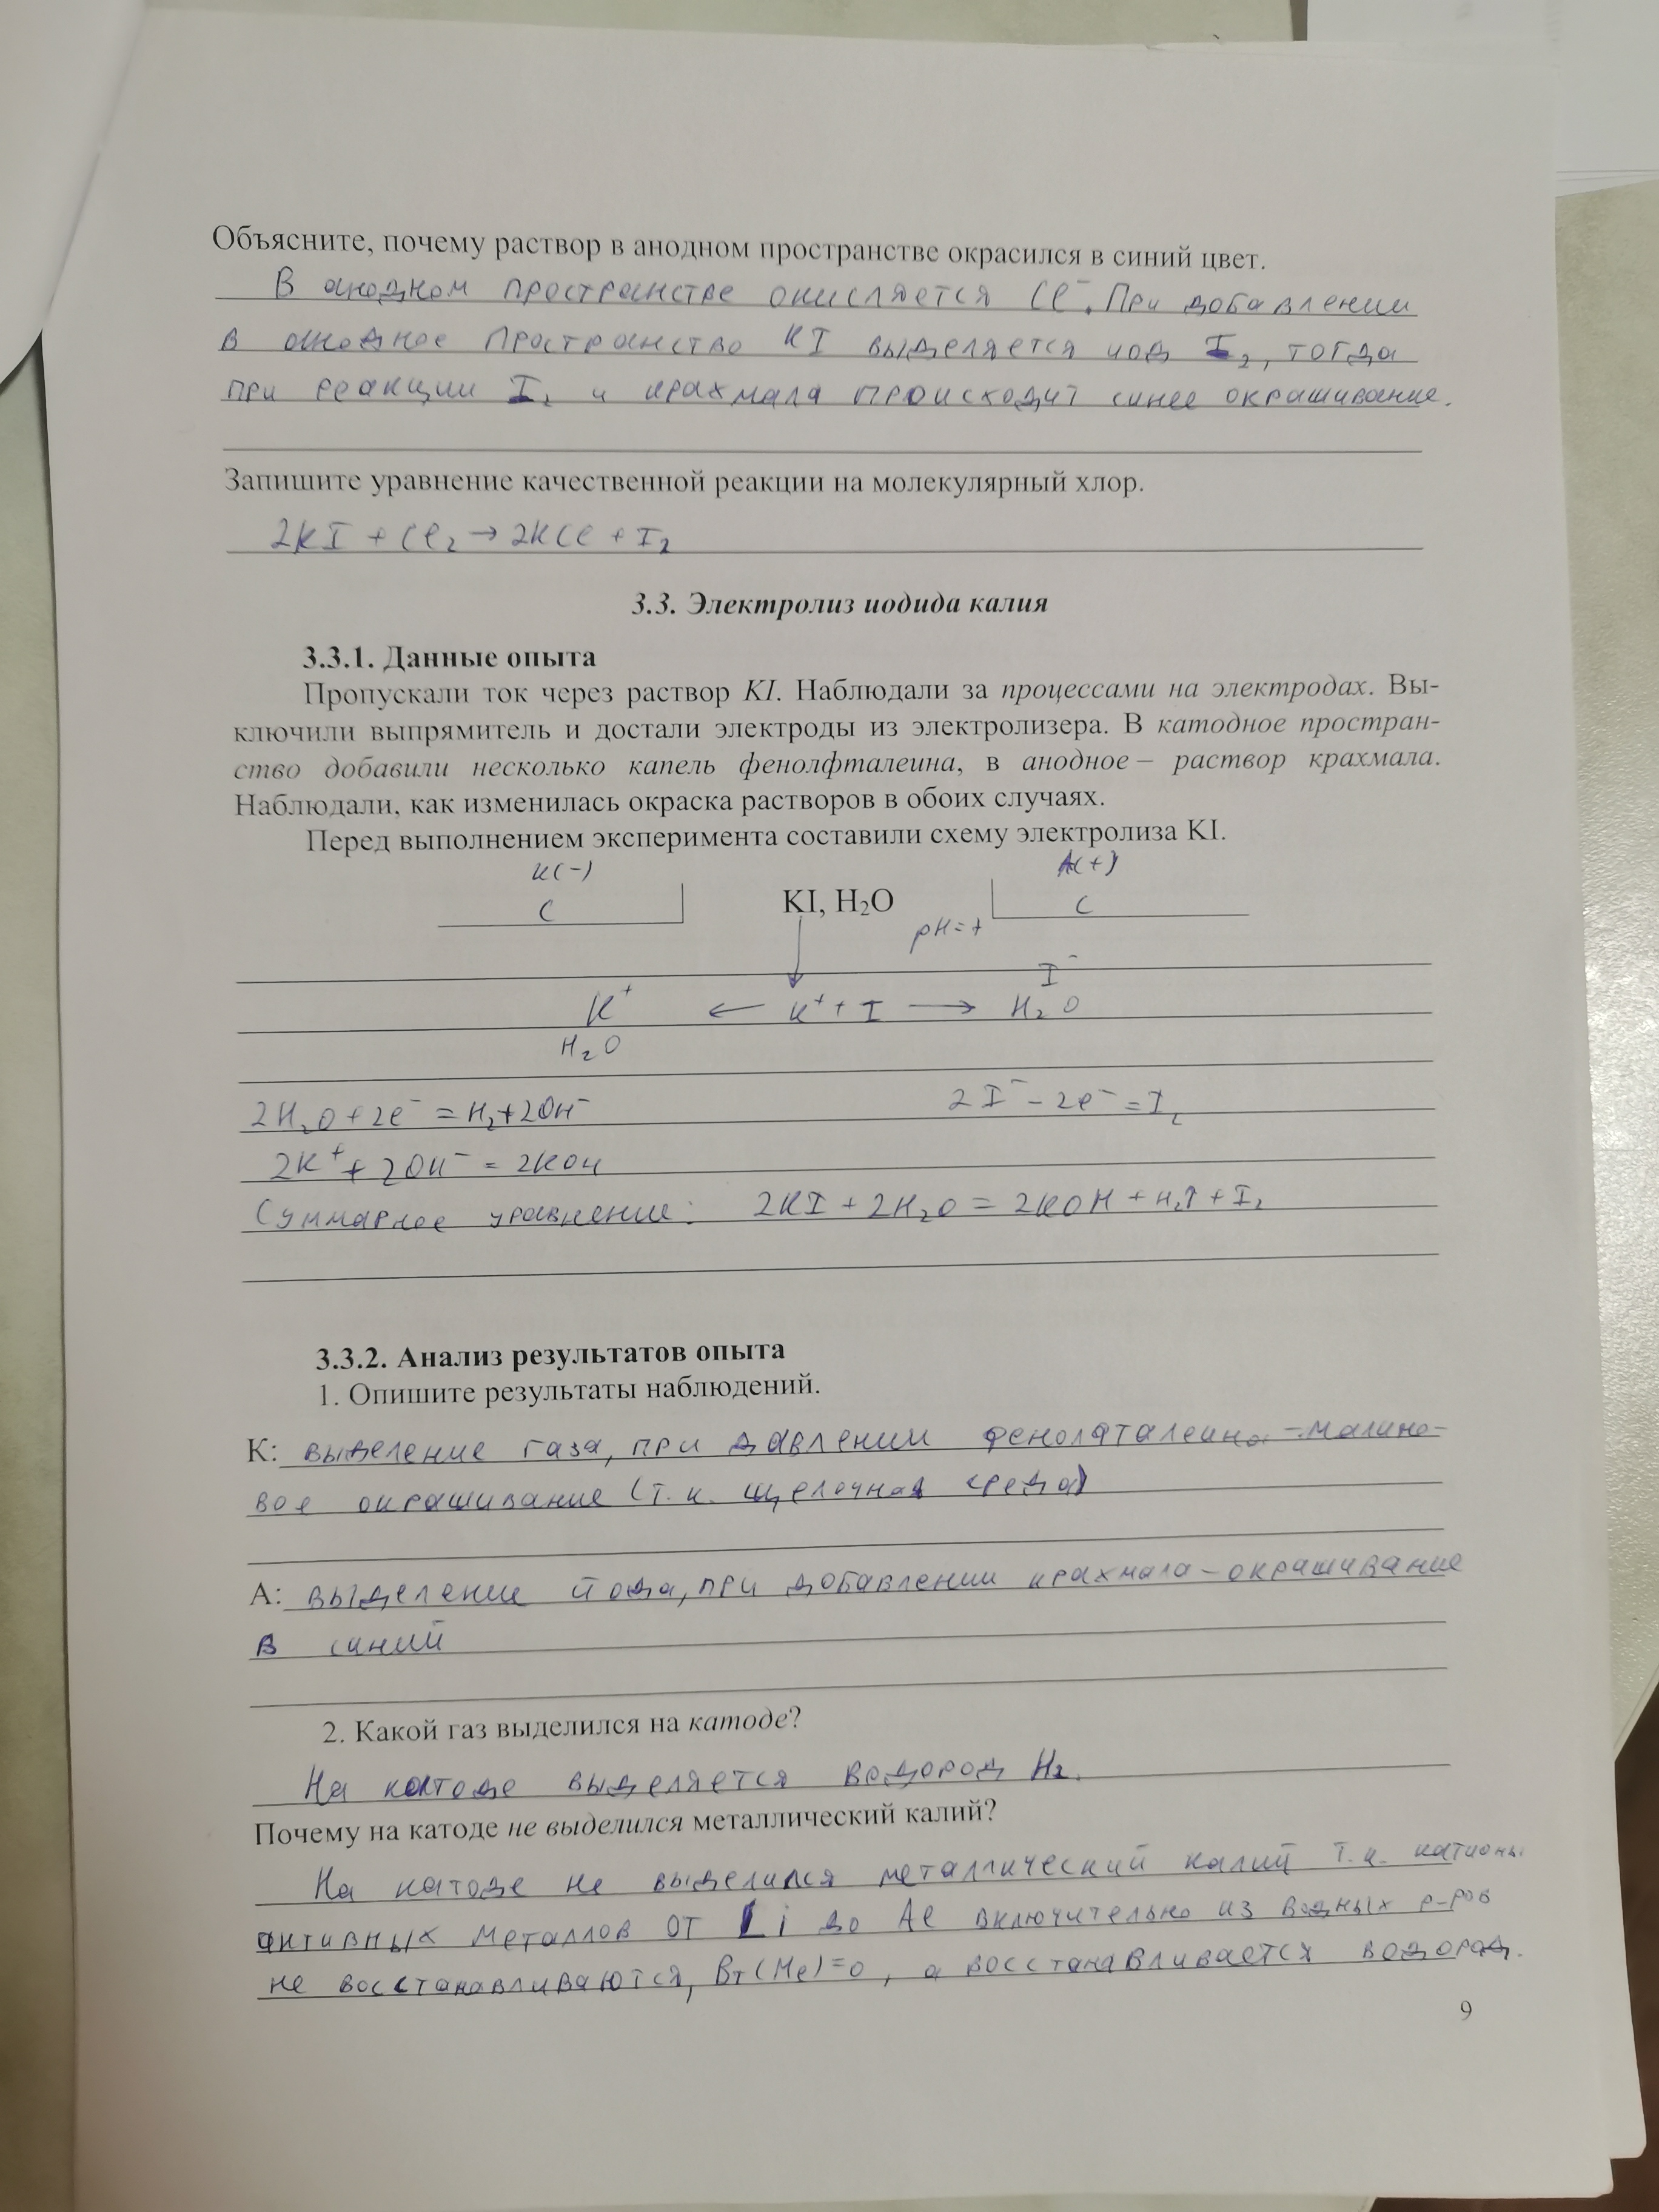 Объясните, почему раствор в анодном пространстве окрасился в синий цвет.
В анодном пространстве окисляется Cl⁻. При добавлении
в анодное пространство KI выделяется иод I₂, тогда
при реакции I₂ и крахмала происходит синее окрашивание.
Запишите уравнение качественной реакции на молекулярный хлор.
2KI + Cl₂ → 2KCl + I₂
3.3. Электролиз иодида калия
3.3.1. Данные опыта
Пропускали ток через раствор KI. Наблюдали за процессами на электродах. Вы-
ключили выпрямитель и достали электроды из электролизера. В катодное простран-
ство добавили несколько капель фенолфталеина, в анодное – раствор крахмала.
Наблюдали, как изменилась окраска растворов в обоих случаях.
Перед выполнением эксперимента составили схему электролиза KI.
K(-) A(+)
C KI, H₂O C
pH=7
I⁻
K⁺ ← K⁺ + I → H₂O
H₂O
2H₂O + 2e⁻ = H₂ + 2OH⁻ 2I⁻ - 2e⁻ = I₂
2K⁺ + 2OH⁻ = 2KOH
Суммарное уравнение: 2KI + 2H₂O = 2KOH + H₂↑ + I₂
3.3.2. Анализ результатов опыта
1. Опишите результаты наблюдений.
К: выделение газа, при давлении фенолфталеина - малино-
вое окрашивание (т.к. щелочная среда)
А: выделение йода, при добавлении крахмала - окрашивание
в синий
2. Какой газ выделился на катоде?
На катоде выделяется водород H₂.
Почему на катоде не выделился металлический калий?
На катоде не выделился металлический калий т.к. катионы
активных металлов от Li до Al включительно из водных р-ров
не восстанавливаются, Вт(Me)=0, а восстанавливается водород.
9